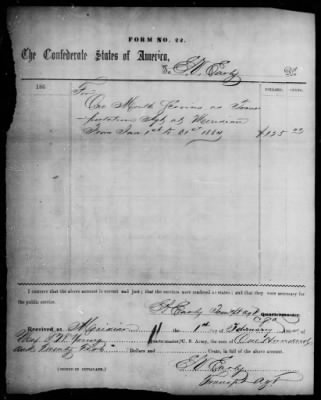 FORM NO. 22.
The Confederate States of America,
To E. W. Early Dr.
186 DOLLARS. CENTS.
For
One Month Services as Trans
portation Agt at Meridian
From Jan 1st to 31st 1864 $125 00
I CERTIFY that the above account is correct and just; that the services were rendered as stated; and that they were necessary for
the public service.
Early Quartermaster.
RECEIVED at Meridian the 1st of February
Quartermaster C. S. Army, the sum of One Hundred
and Twenty Five Dollars and Cents, in full of the above account.
[SIGNED IN DUPLICATE.] E. W. Early
Transpt Agt